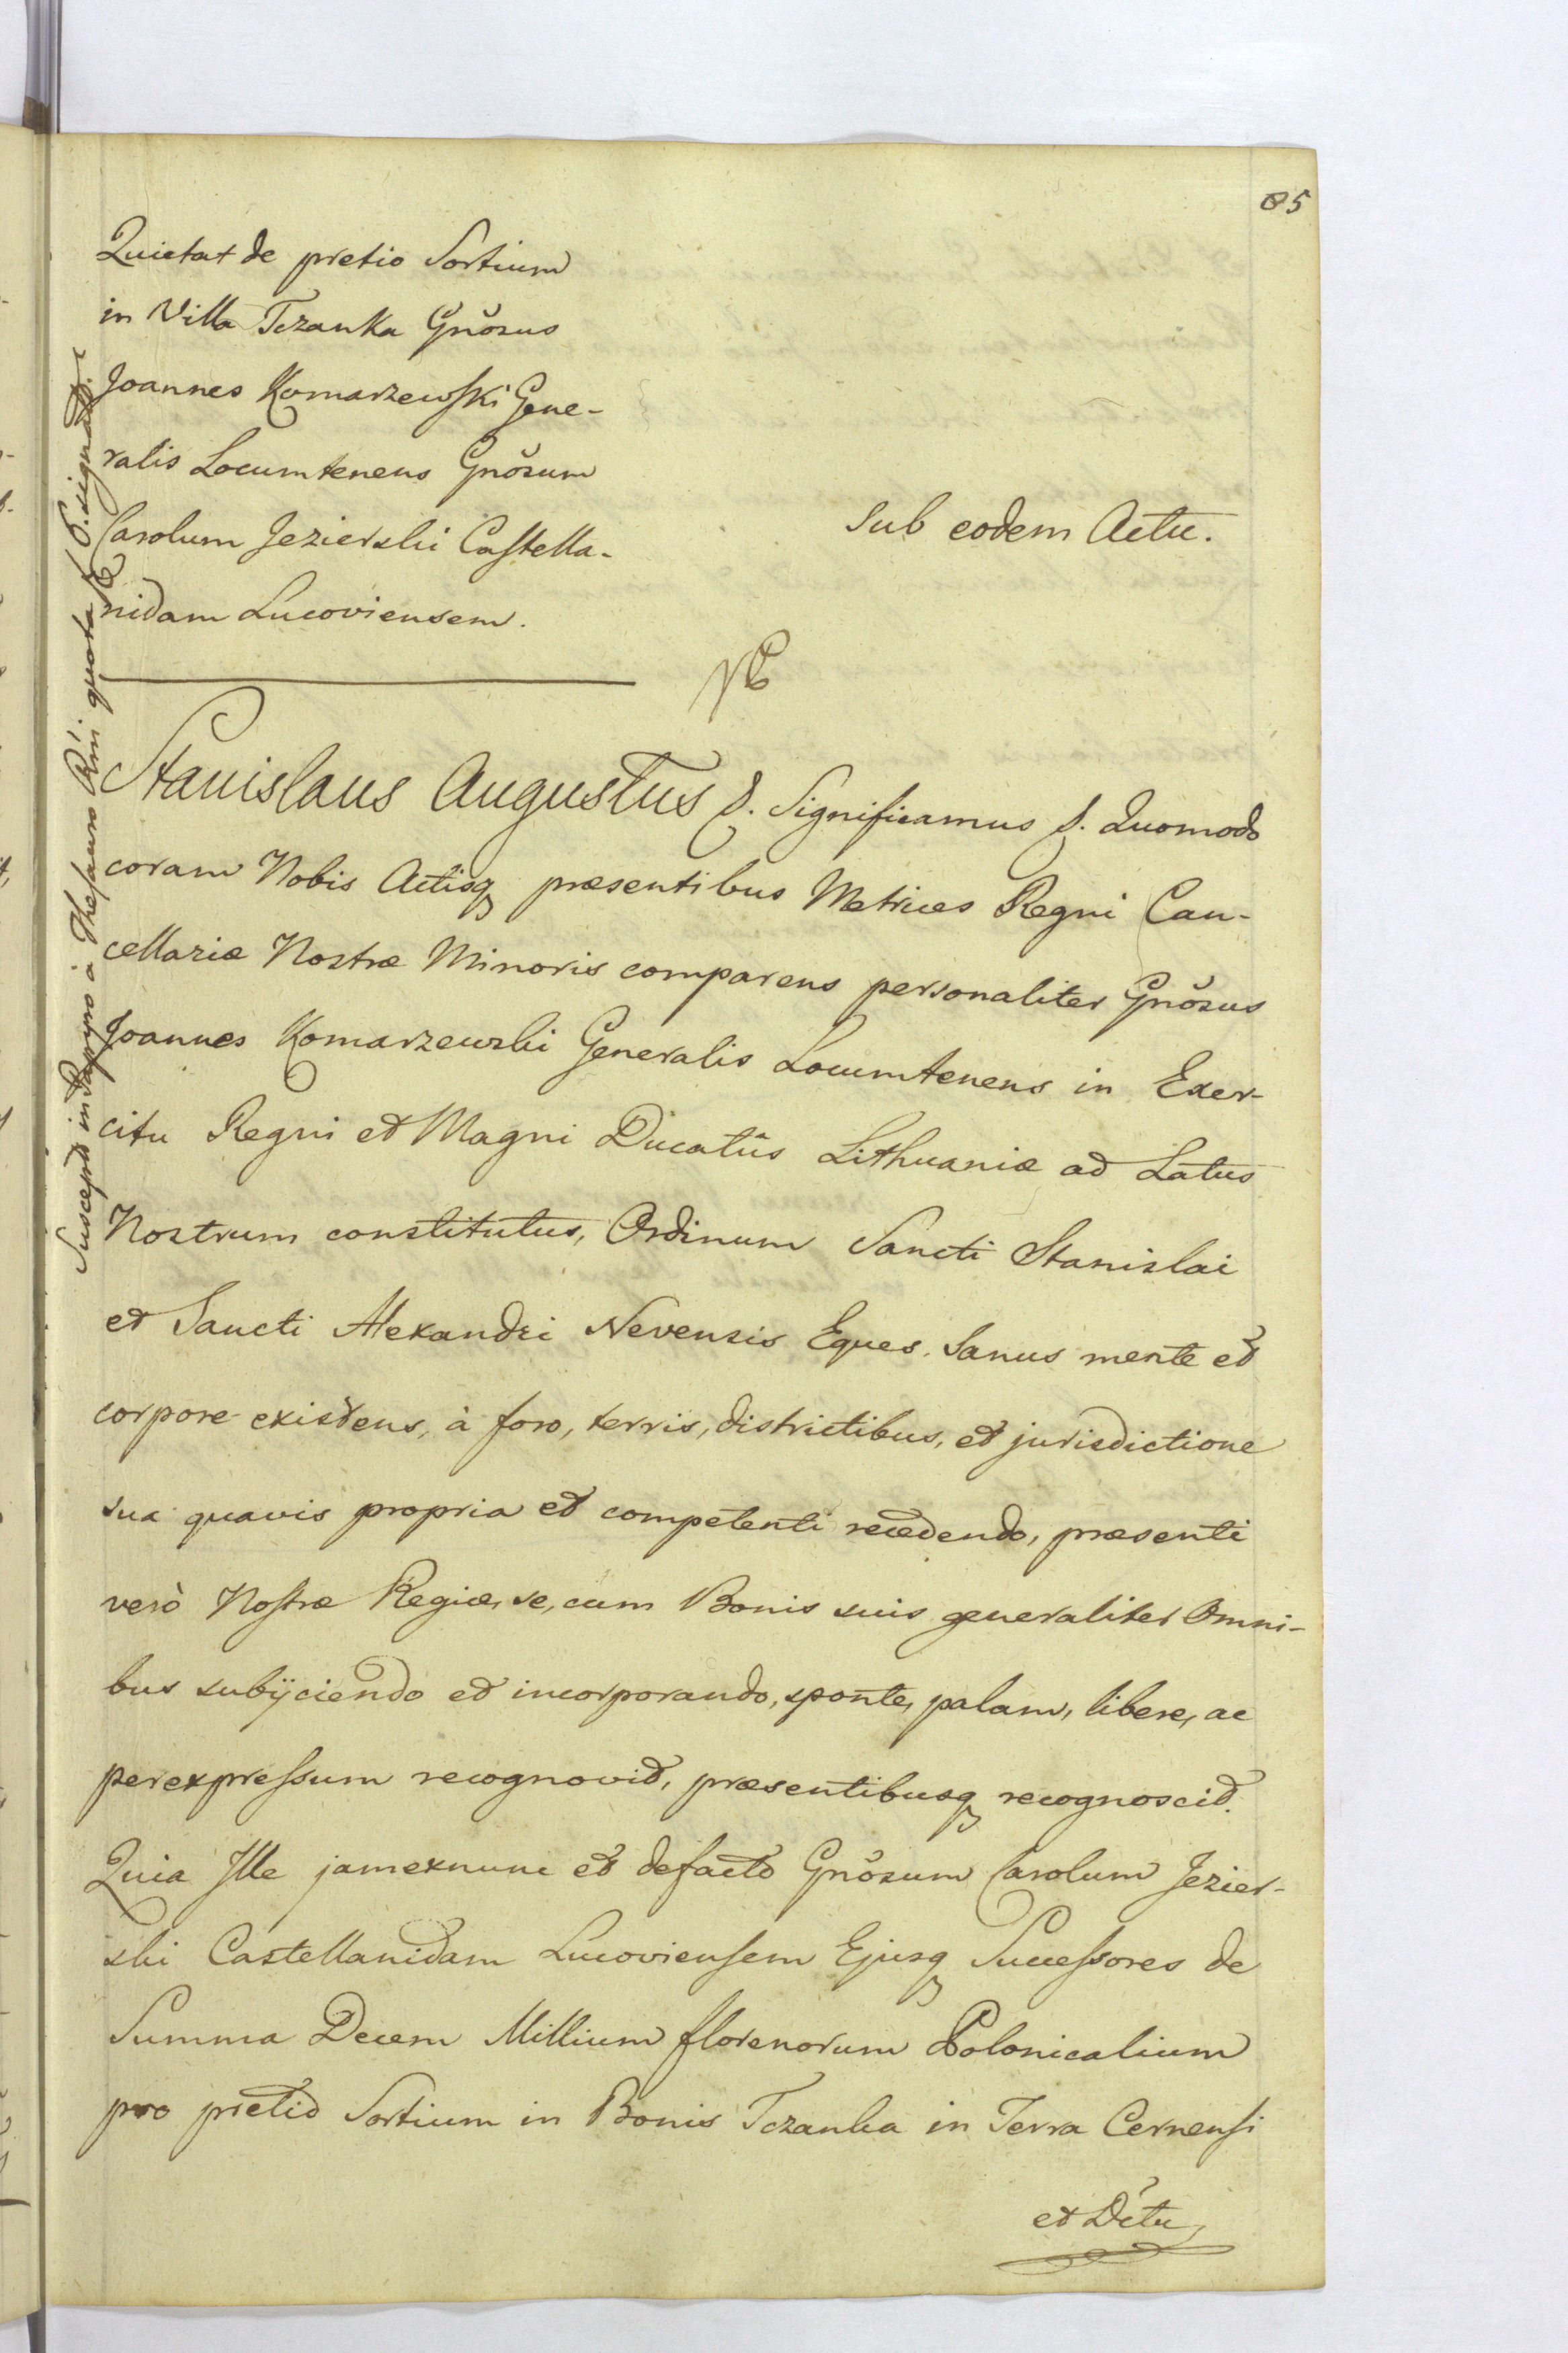 85
Quietat de pretio Sortium
in Villa Tczanka Gnõsus
Joannes Komarzewski Gene-
ralis Locumtenens Gnõsum
Carolum Jezierski Castella-
nidam Lucoviensem.
Sub eodem Actu.
Stanislaus Augustus &. Significamus &. Quomodo
coram Nobis Actisq præsentibus Metrices Regni Can-
cellariæ Nostræ Minoris comparens personaliter Gnõsus
Joannes Komarzewski Generalis Locumtenens in Exer-
citu Regni et Magni Ducatûs Lithuaniæ ad Latus
Nostrum constitutus, Ordinum Sancti Stanislai
et Sancti Alexandri Nevensis Eques. Sanus mente et
corpore existens, à foro, terris, districtibus, et jurisdictione
sua quavis propria et competenti recedendo, præsenti
verò Nostræ Regiæ, se, cum Bonis suis generaliter Omni-
bus subijciendo et incorporando, sponte, palam, libere, ac
perexpressum recognovit, præsentibusq recognoscit.
Quia Ille jamexnunc et defacto Gnõsum Carolum Jezier-
ski Castellanidam Lucoviensem Ejusq Successores de
Summa Decem Millium florenorum Polonicalium
pro pretio Sortium in Bonis Tczanka in Terra Cernensi
et Dctu
Susceptũ in Papyro à Thesauro Rni quota signato